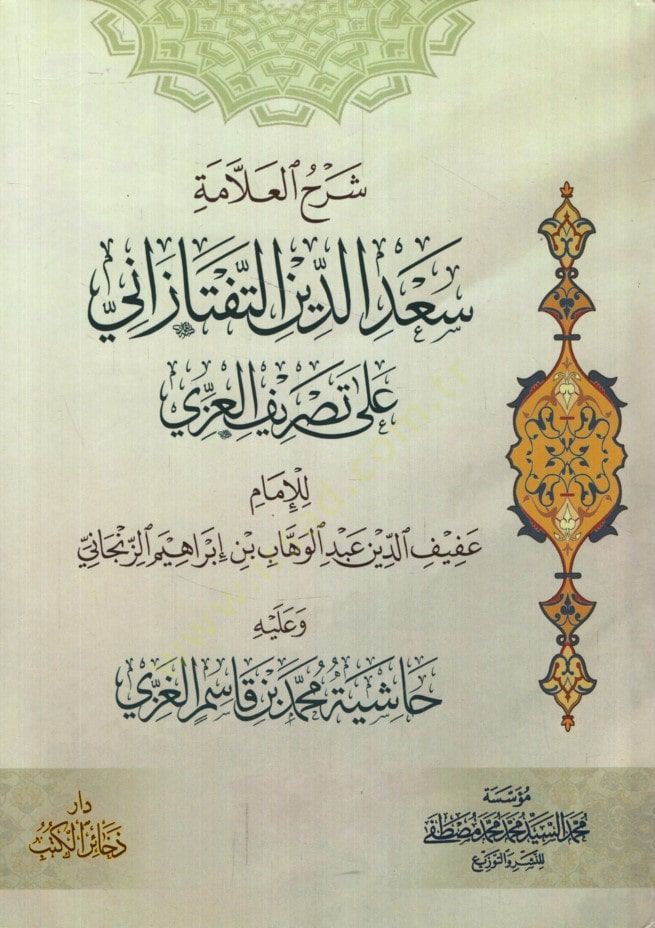 شَرْحُ العَلَّامَةِ
سَعْدِ الدِّينِ التَّفْتَازَانِيِّ
عَلَى تَصْرِيفِ العِزِّي
لِلْإِمَامِ
عَفِيفِ الدِّينِ عَبْدِ الوَهَّابِ بْنِ إِبْرَاهِيمَ الزِّنْجَانِيِّ
وَعَلَيْهِ
حَاشِيَةُ مُحَمَّدِ بْنِ قَاسِمِ الغَزِّي
مُؤَسَّسَة
مُحَمَّد السَّيِّد مُحَمَّد مُحَمَّد مُصْطَفَى
لِلنَّشْرِ وَالتَّوْزِيعِ
دار
ذَخَائِرِ الكُتُبِ